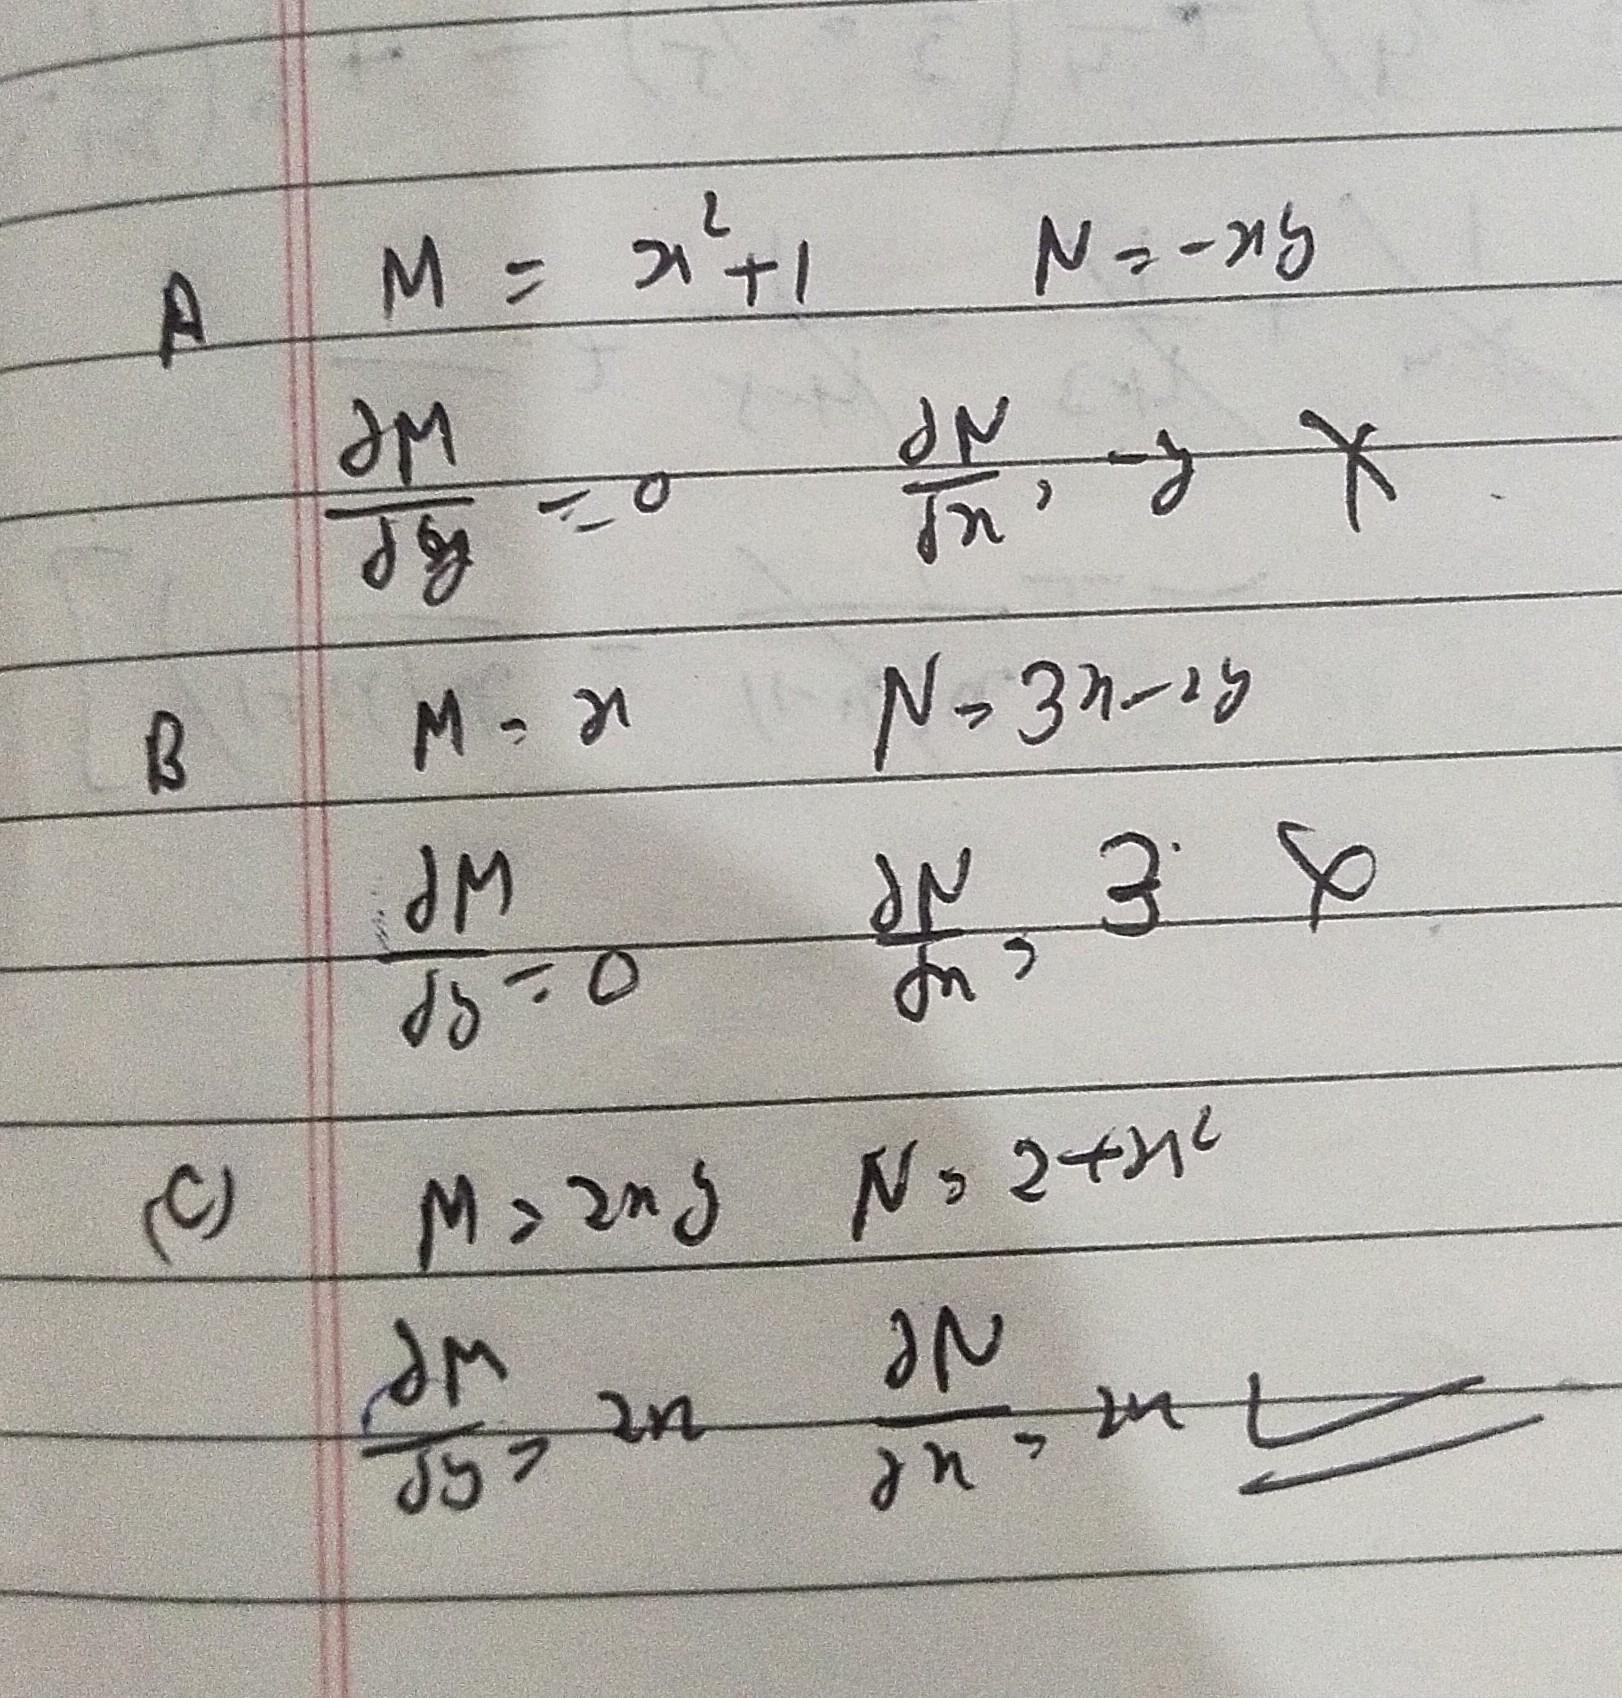 A M = x²+1 N = -xy
∂M/∂y = 0 ∂N/∂x = -y ✗
B M = x N = 3x-2y
∂M/∂y = 0 ∂N/∂x = 3 ✗
(C) M = 2xy N = 2+x²
∂M/∂y = 2x ∂N/∂x = 2x ✓